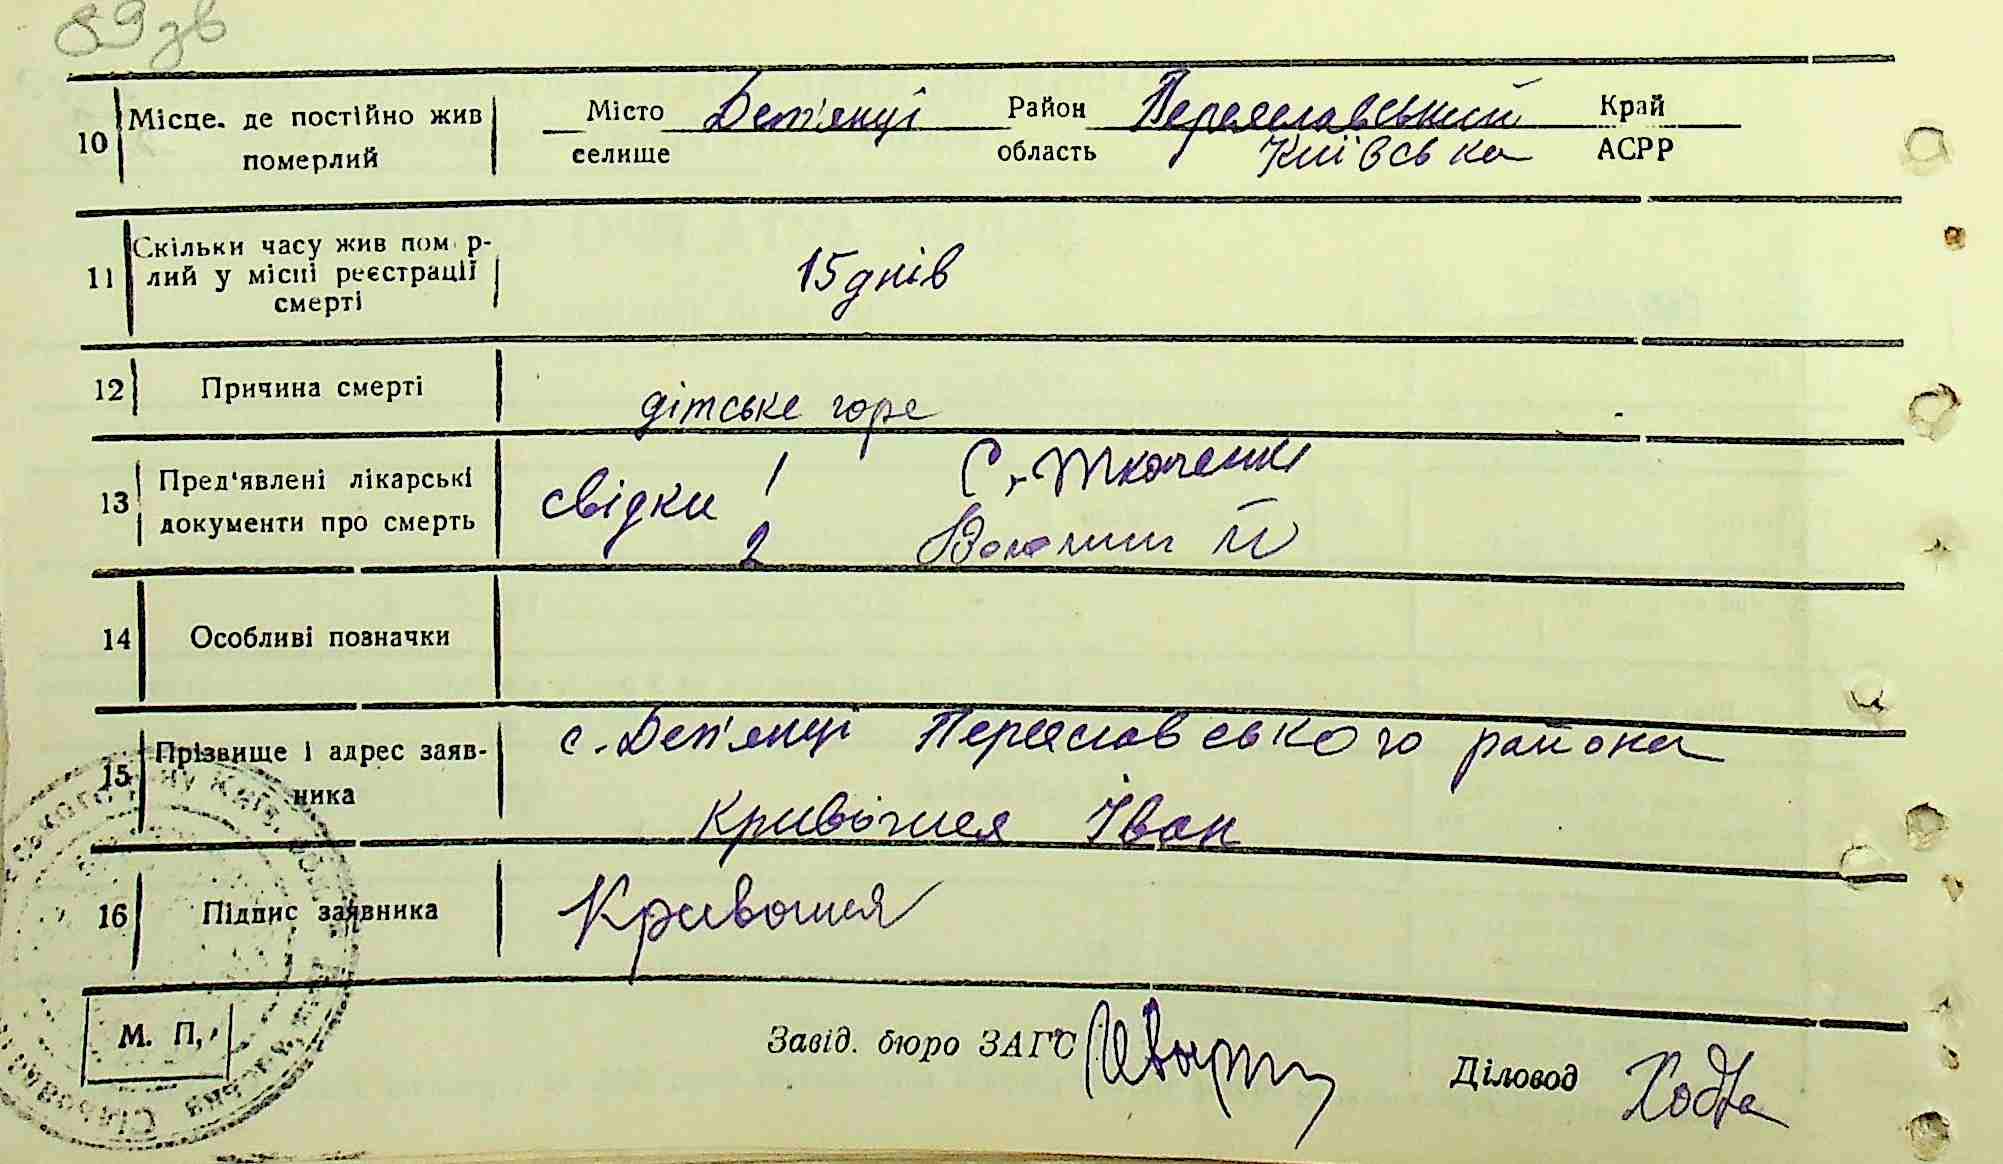 89 зв
10 Місце, де постійно жив померлий Місто селище Дем'янці Район область Переяславський Київська Край АСРР
11 Скільки часу жив померлий у місці реєстрації смерті 15 днів
12 Причина смерті дітське горе
13 Пред'явлені лікарські документи про смерть свідки 1 С. Ткаченко
2
14 Особливі позначки
15 Прізвище і адрес заявника с. Дем'янці Переяславського района
Кривошея Іван
16 Підпис заявника Кривошея
М. П.
Завід. бюро ЗАГС Діловод